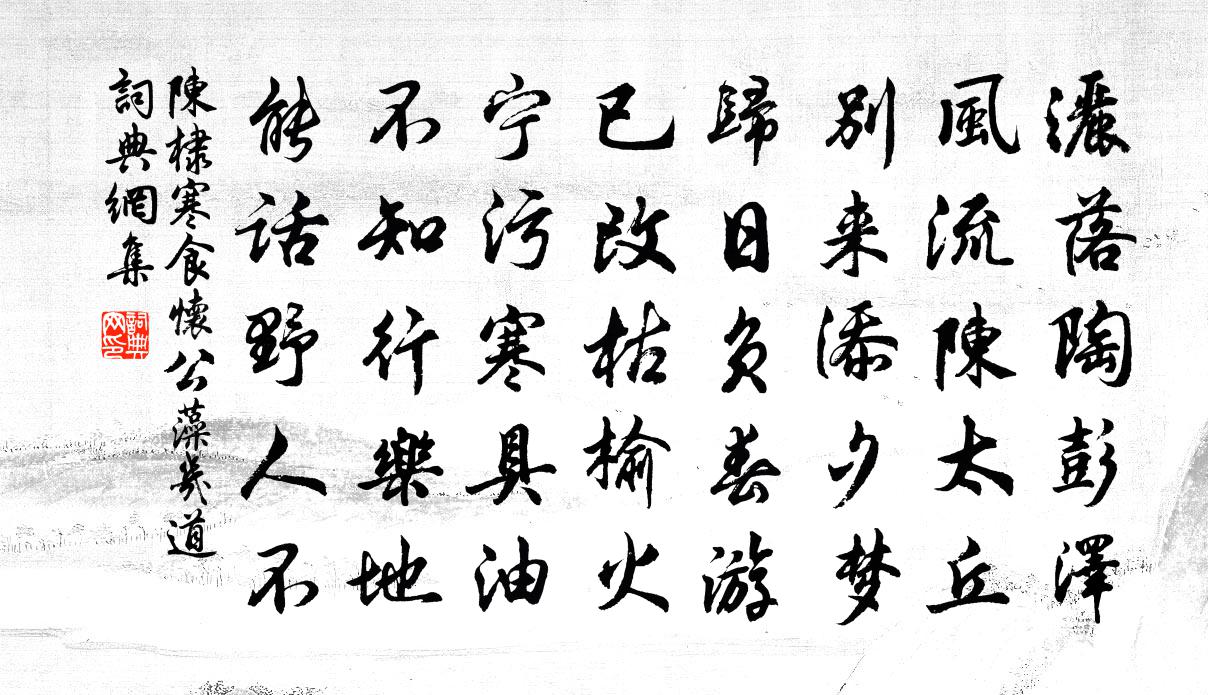 灑落陶彭澤
風流陳太丘
別来添夕梦
歸日負春游
已改枯榆火
宁污寒具油
不知行樂地
能話野人不
陳棣寒食懷公藻幾道
詞典網集
詞典网印